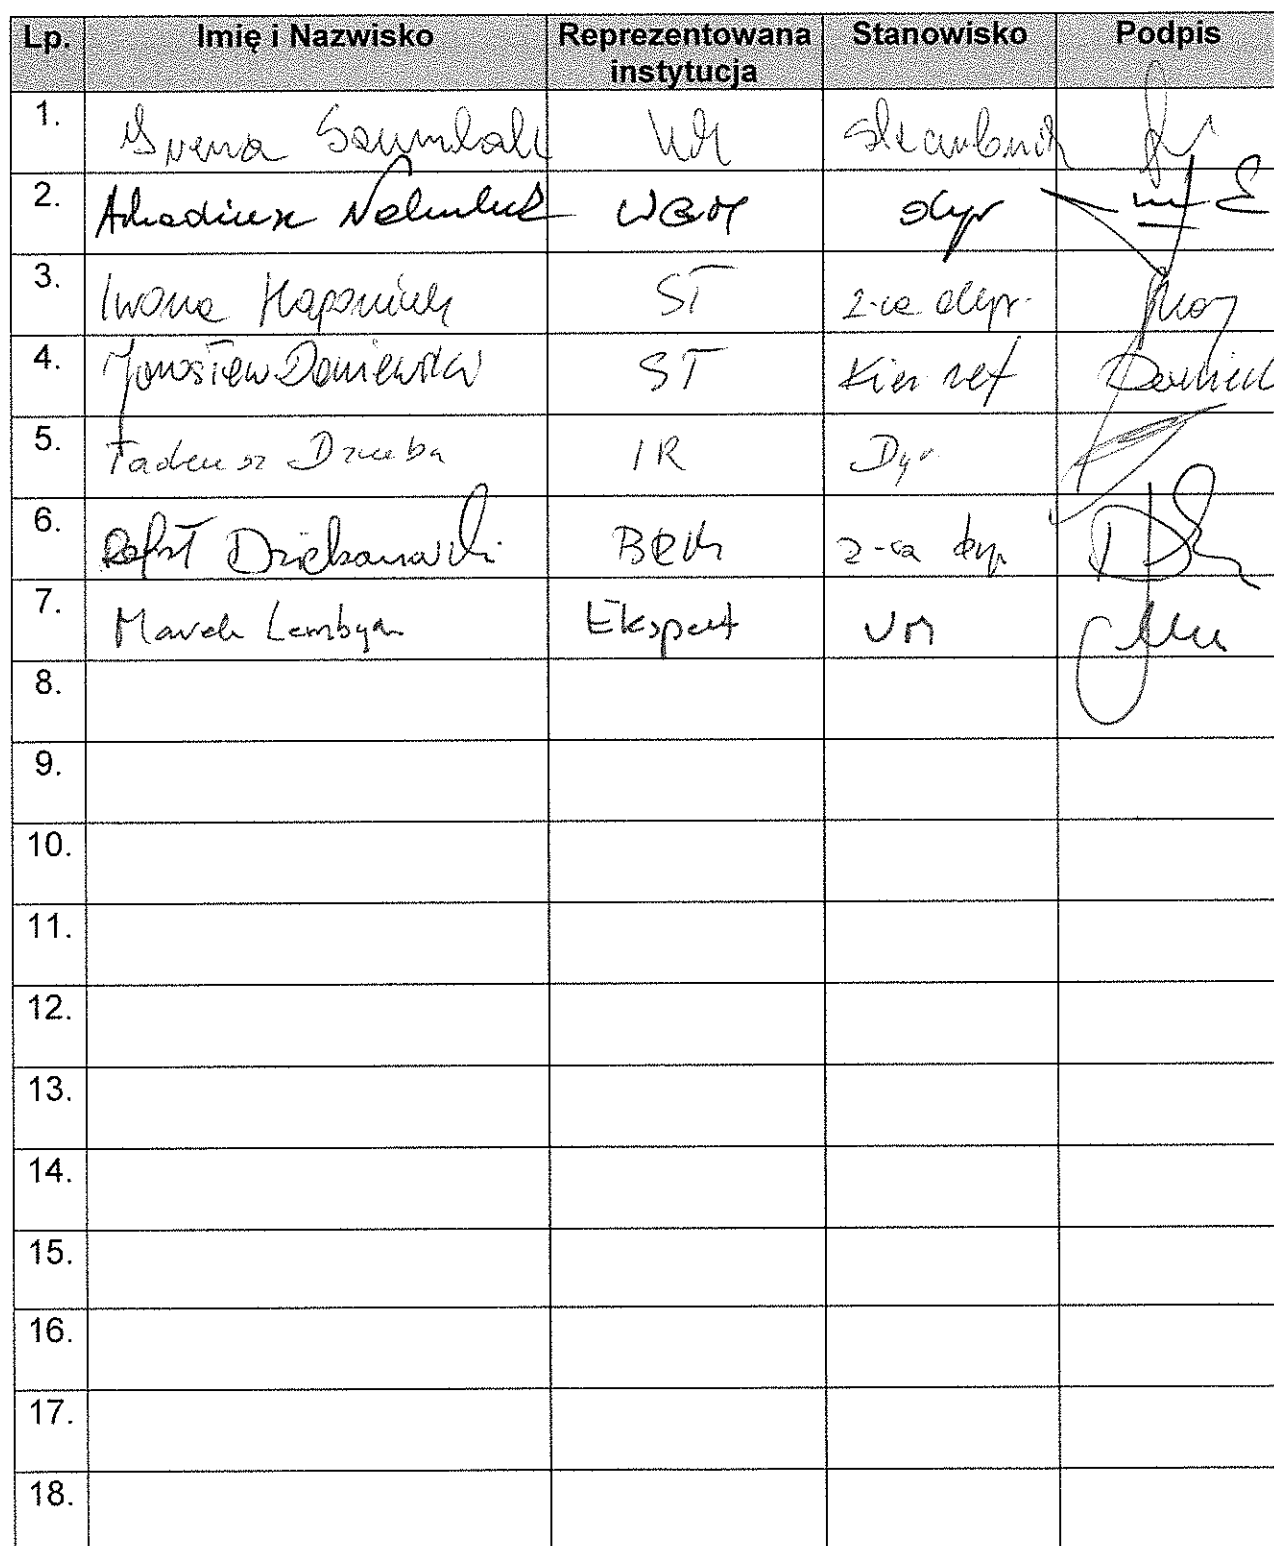 Lp. Imię i Nazwisko Reprezentowana instytucja Stanowisko Podpis
1. Irena Szumlak UM Skarbnik
2. Arkadiusz WGM dyr
3. Iwona Haponiuk ST z-ca dyr.
4. Jarosław Daniewski ST Kier ref
5. Tadeusz Dzieba IR Dyr.
6. Rafał Dziekanowski z-ca dyr
7. Marek Ekspert UM
8.
9.
10.
11.
12.
13.
14.
15.
16.
17.
18.